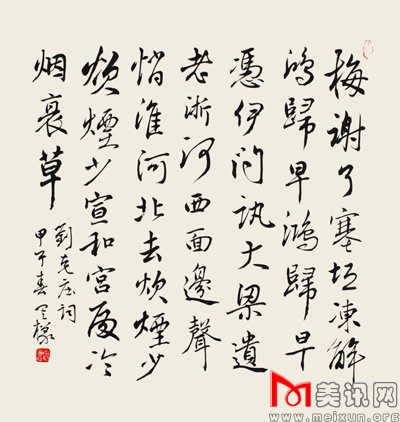 梅謝了塞垣凍解
鴻歸早鴻歸早
憑伊問訊大梁遺
老浙河西面邊聲
悄淮河北去炊煙少
炊煙少宣和宮殿冷
烟衰草
劉克庄詞
甲午春
美讯网
www.meixun.org